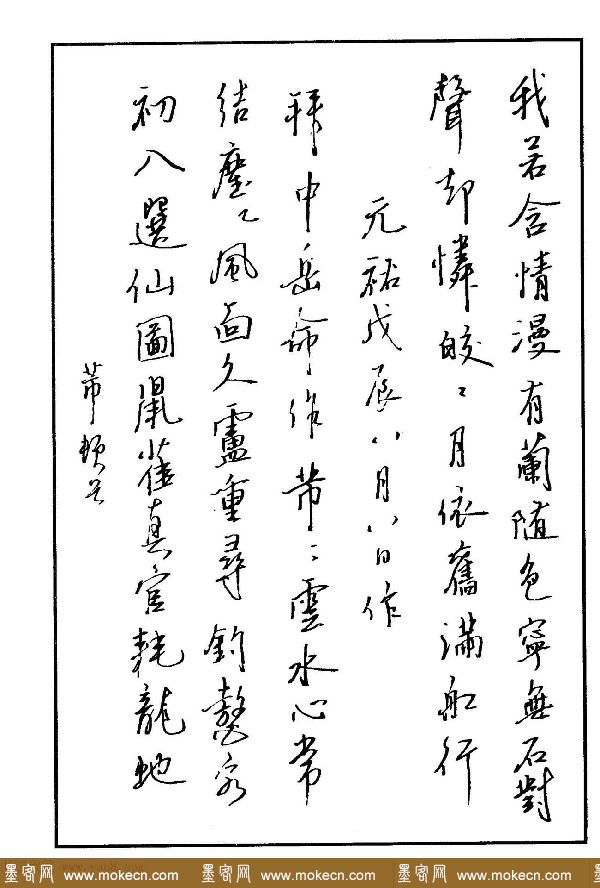 我若含情漫有蘭随色寧無石對
聲却憐皎〻月依舊滿船行
元祐戊辰八月八日作
拜中岳命作芾〻雲水心常
结塵〻風面久盧重尋釣鼇客
初入選仙圖鼠雀真官耗龍虵
芾頓首
墨客网 www.mokecn.com 墨客网 www.mokecn.com 墨客网 www.mokecn.com